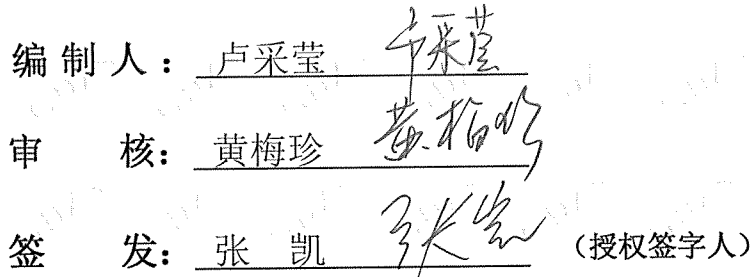 编制人：卢采莹 卢采莹
审 核：黄梅珍 黄梅珍
签 发：张 凯 张凯 （授权签字人）